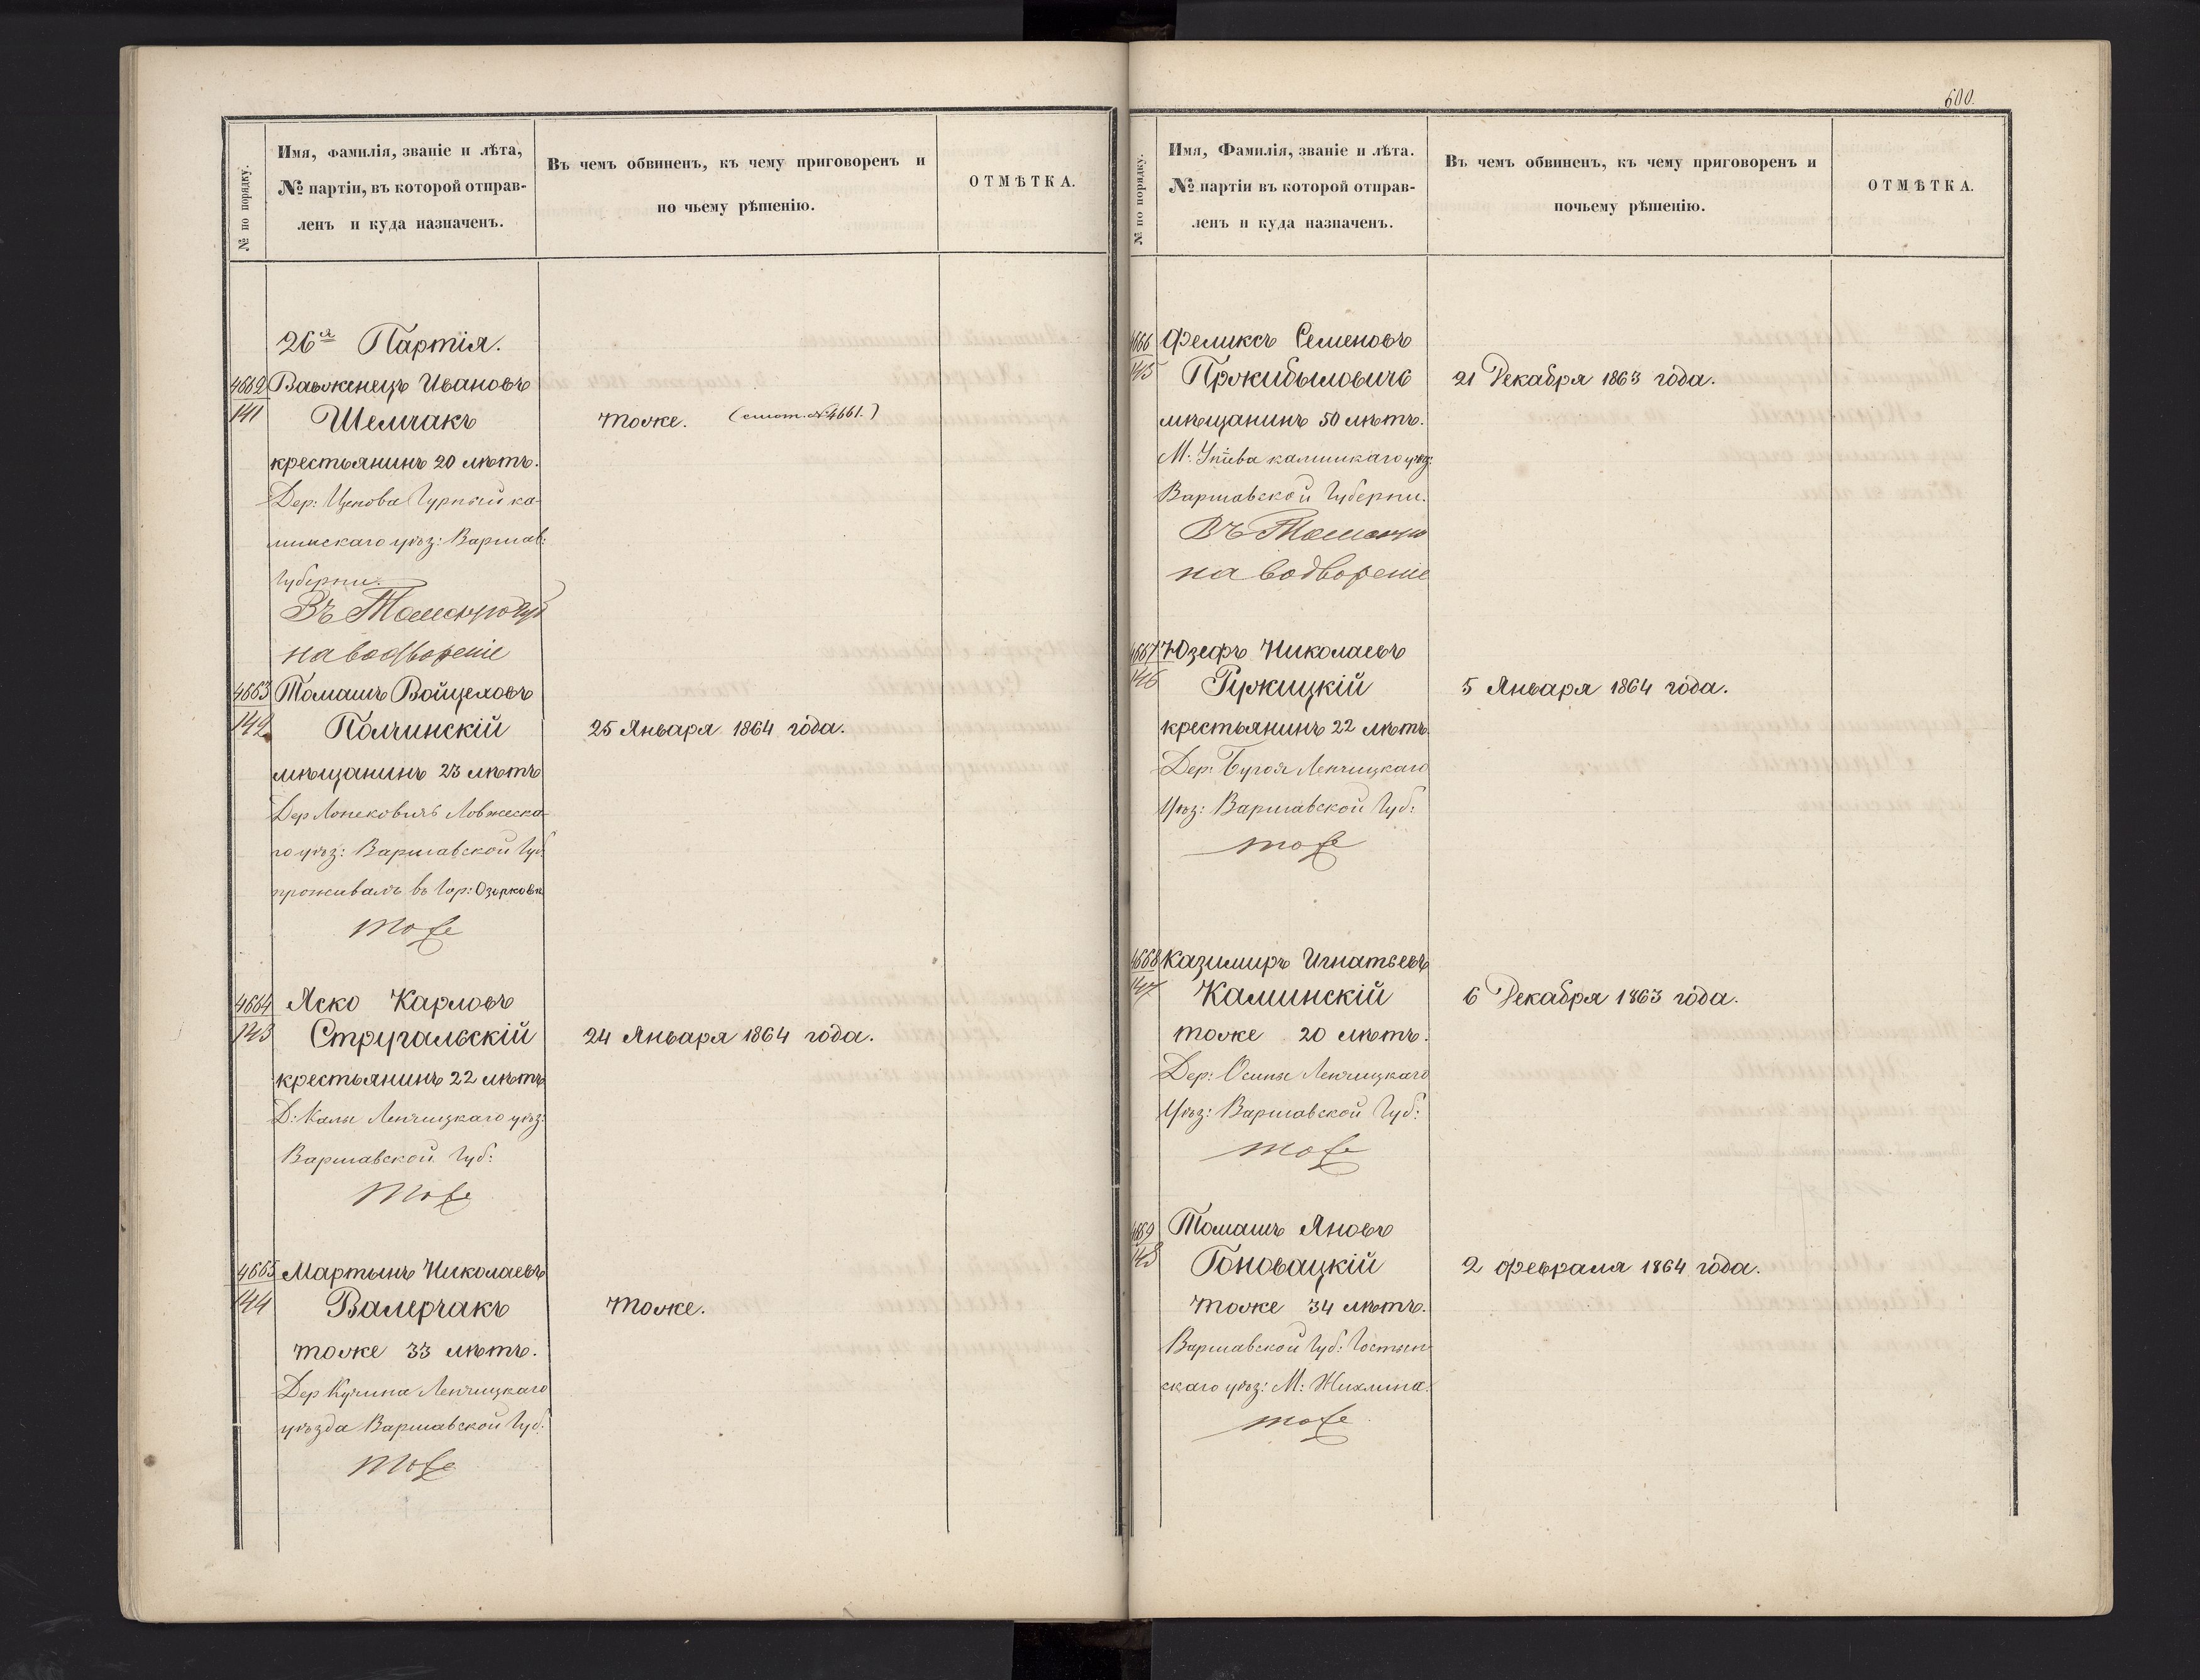 № по порядку.
Имя, Фамилія, званіе и лѣта,
№ партіи, въ которой отправ-
ленъ и куда назначенъ.
Въ чемъ обвиненъ, къ чему приговоренъ и
по чьему рѣшенію.
ОТМѢТКА.
26я Партія.
4662
141
Вавженецъ Ивановъ
Шелчакъ
крестьянинъ 20 лѣтъ.
Дер: Цекова Гурный ка-
лишскаго уѣз: Варшав:
Губерни.
Въ Томскую Губ
на водвореніе
тоже. (смот. № 4661.)
4663
142
Томашъ Войцеховъ
Полчинскій
мѣщанинъ 23 лѣтъ
Дер Лопековичъ Ловжеска-
го уѣз: Варшавской Губ:
проживалъ въ Гор: Озоркови
тоже
25 Января 1864 года.
4664
143
Яско Карловъ
Стругальскій
крестьянинъ 22 лѣтъ
Д: Калы Ленчицкаго уѣз:
Варшавской Губ:
тоже
24 Января 1864 года.
4665
144
Мартынъ Николаевъ
Валерчакъ
тоже 33 лѣтъ.
Дер Кучина Ленчицкаго
уѣзда Варшавской Губ:
тоже
тоже.
600.
№ по порядку.
Имя, Фамилія, званіе и лѣта.
№ партіи въ которой отправ-
ленъ и куда назначенъ.
Въ чемъ обвиненъ, къ чему приговоренъ и
почьему рѣшенію.
ОТМѢТКА.
4666
145
Феликсъ Семеновъ
Пржибыловичъ
мѣщанинъ 50 лѣтъ.
М: калишкаго уѣз:
Варшавской Губерни.
Въ Томскую
на водвореніе
21 Декабря 1863 года.
4667
146
Юзефъ Николаевъ
Ружицкій
крестьянинъ 22 лѣтъ.
Дер: Бугоя Ленчицкаго
Уѣз: Варшавской Губ:
тоже
5 Января 1864 года.
4668
147
Казимиръ Игнатьевъ
Калинскій
тоже 20 лѣтъ.
Дер: Осины Ленчицкаго
Уѣз: Варшавской Губ:
тоже
6 Декабря 1863 года.
4669
148
Томашъ Яновъ
Гоновацкій
тоже 34 лѣтъ.
Варшавской Губ: Гостын-
скаго уѣз: М: Жихлина.
тоже
2 Февраля 1864 года.